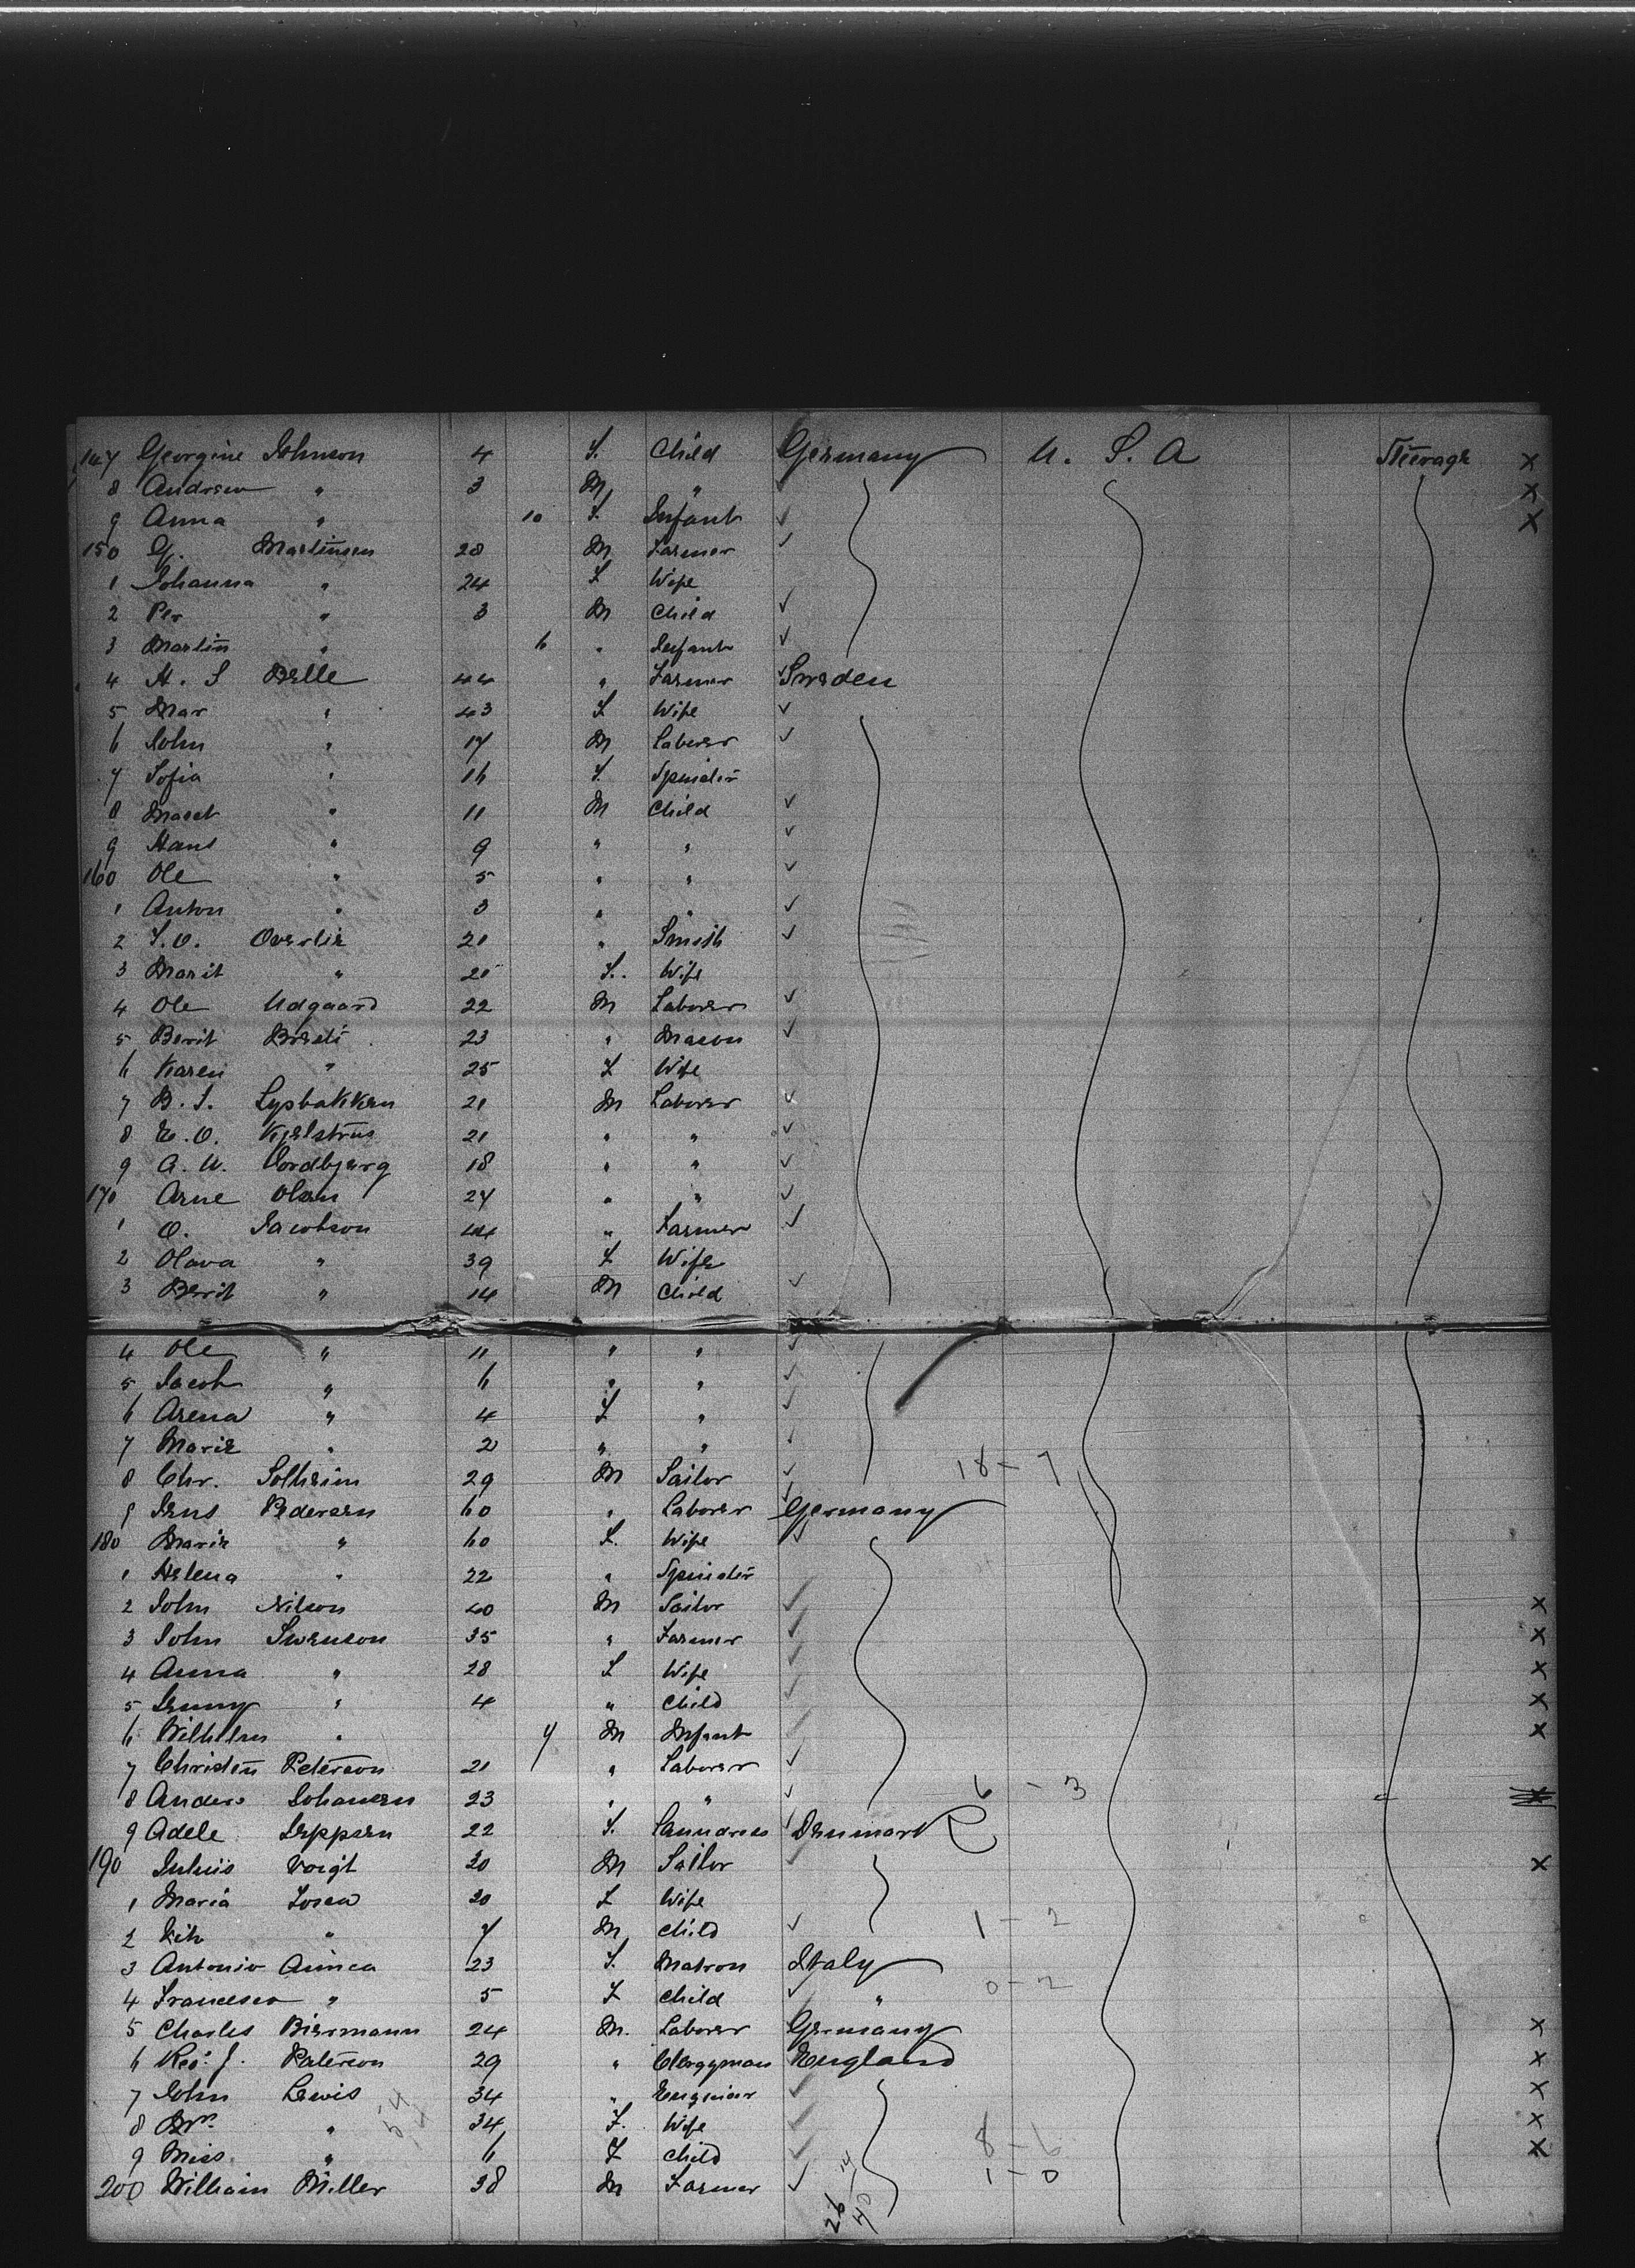 147 Georgine Johnson 4 F. Child Germany U. S. A Steerage X
8 Andrew " 3 M, " ✓ X
9 Anna " 10 F. Infant ✓ X
150 G. Martinsen 28 M Farmer ✓
1 Johanna " 24 F Wife
2 Per " 3 M Child ✓
3 Martin " 6 " Infant ✓
4 H. S Belle 44 " Farmer ✓ Sweden
5 Mar " 43 F Wife ✓
6 John " 17 M Laborer ✓
7 Sofia " 16 F. Spinster
8 " 11 M Child ✓
9 Hans " 9 " " ✓
160 Ole " 5 " " ✓
1 Anton " 3 " " ✓
2 T. O. Overlie 21 " Smith ✓
3 Marit " 20 F. Wife
4 Ole Udgaard 22 M Laborer ✓
5 Berit 23 " Mason ✓
6 Karen " 25 F Wife
7 B. S. Lysbakken 21 M Laborer ✓
8 E. O. 21 " " ✓
9 A. U. Nordbjerg 18 " " ✓
170 Arne Olsen 27 " " ✓
1 O. Jacobson 44 " Farmer ✓
2 Olava " 39 F Wife
3 Berit " 14 M Child ✓
4 Ole " 11 " " ✓
5 Jacob " 6 " " ✓
6 Arena " 4 F " ✓
7 Marie " 2 " " ✓
8 Chr. Solheim 29 M Sailor ✓ 18 - 7
9 Jens Pedersen 60 " Laborer ✓ Germany
180 Marie " 60 F. Wife ✓
1 Helena " 22 " Spinster
2 John Nilson 40 M Sailor ✓ X
3 John Swenson 35 " Farmer ✓ X
4 Anna " 28 F Wife ✓ X
5 Jenny " 4 " Child ✓ X
6 Wilhelm " 7 M Infant ✓ X
7 Christen Peterson 21 " Laborer ✓
8 Anders Johansen 23 " " ✓ 6 - 3 " X
9 Adele Jeppsen 22 F. Laundress ✓ Denmark
190 Julius Voigt 30 M Sailor ✓ X
1 Maria Losca 30 F Wife
2 " 7 M, Child ✓ 1 - 2
3 Antonio 23 F. Matron Italy
4 Francesco " 5 F Child ✓ " 0 - 2
5 Charles Biermann 24 M. Laborer Germany X
6 Rev. J. Paterson 29 " Clergyman England X
7 John Lewis 34 " Engineer ✓ X
8 Mrs. " 34 F. Wife ✓ X
9 Miss " 6 F Child ✓ 8 - 6 X
200 William Miller 38 M Farmer ✓ 1 - 0